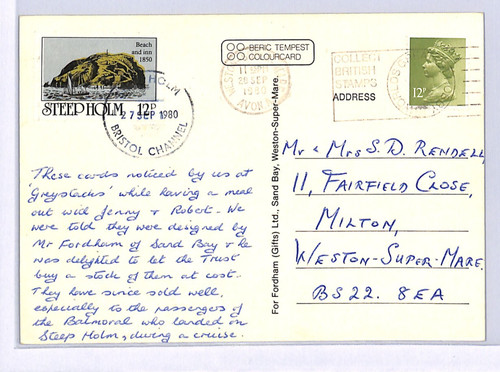 Beach
and inn
1850
STEEP HOLM. 12P
HOLM
27 SEP 1980
BRISTOL CHANNEL
BERIC TEMPEST
COLOURCARD
1980
AVON
COLLECT
BRITISH
STAMPS
ADDRESS
12P
For Fordham (Gifts) Ltd., Sand Bay, Weston-Super-Mare.
These cards noticed by us at
'Greystacks' while having a meal
out with Jenny & Robert. We
were told they were designed by
Mr Fordham of Sand Bay & he
was delighted to let the Trust
buy a stock of them at cost.
They have since sold well,
especially to the passengers of
the Balmoral who landed on
Steep Holm, during a cruise.
Mr & Mrs S. D. RENDELL,
11, FAIRFIELD CLOSE,
MILTON,
WESTON-SUPER-MARE.
BS22. 8EA